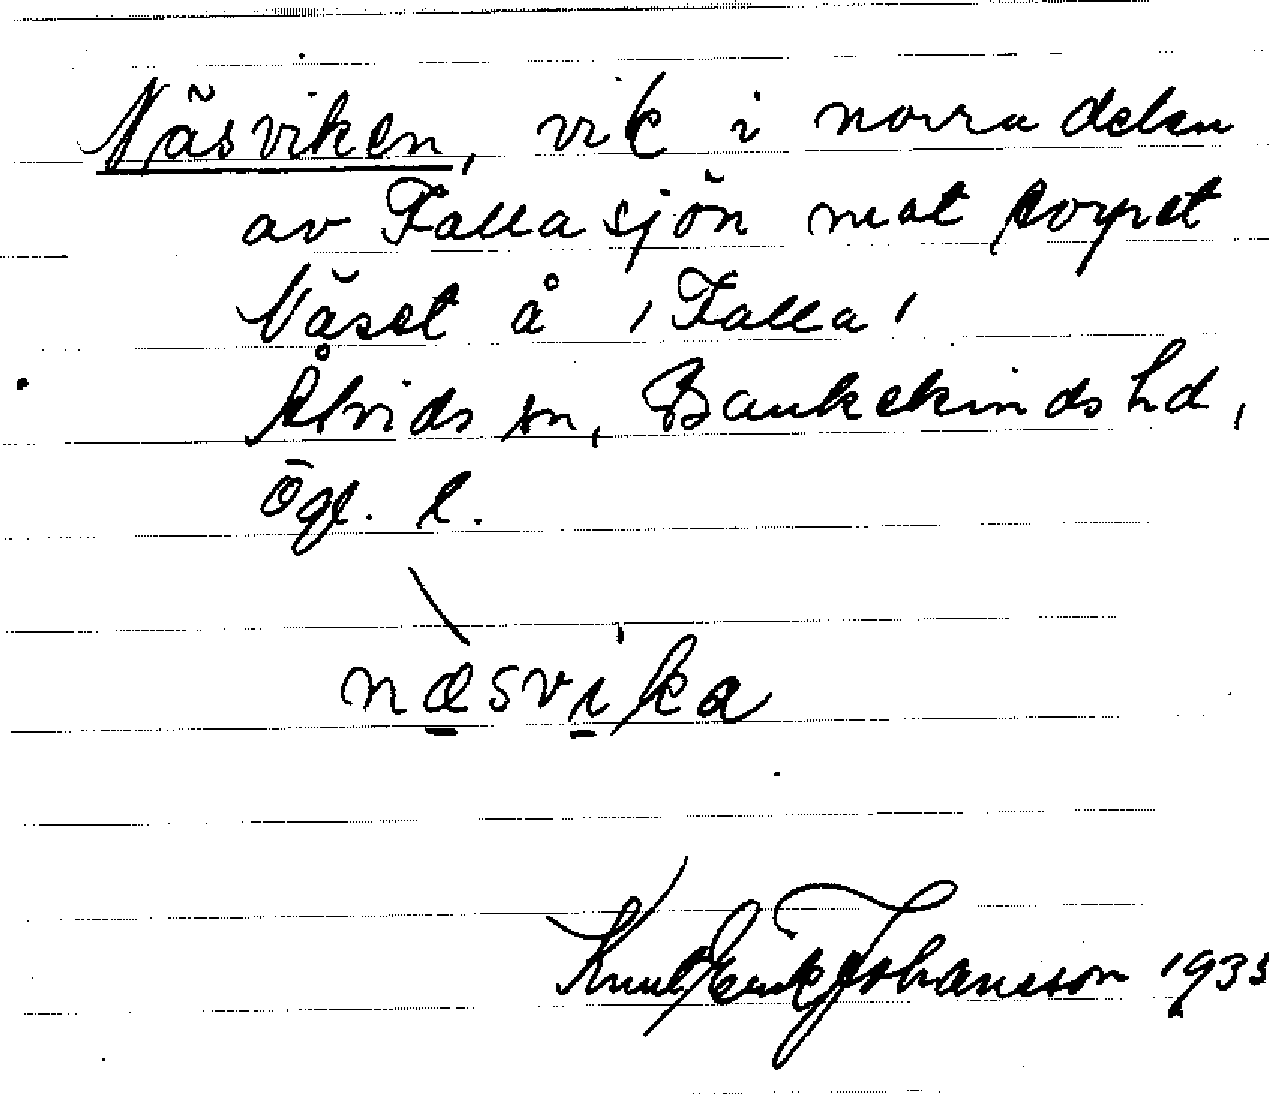 Näsviken, vik i norra delen
av Fallasjön mot torpet
Näset å 1 Falla 1
Åtvids sn, Bankekinds hd,
Ögl. l.
næsvika
Knut Erik Johansson 1933